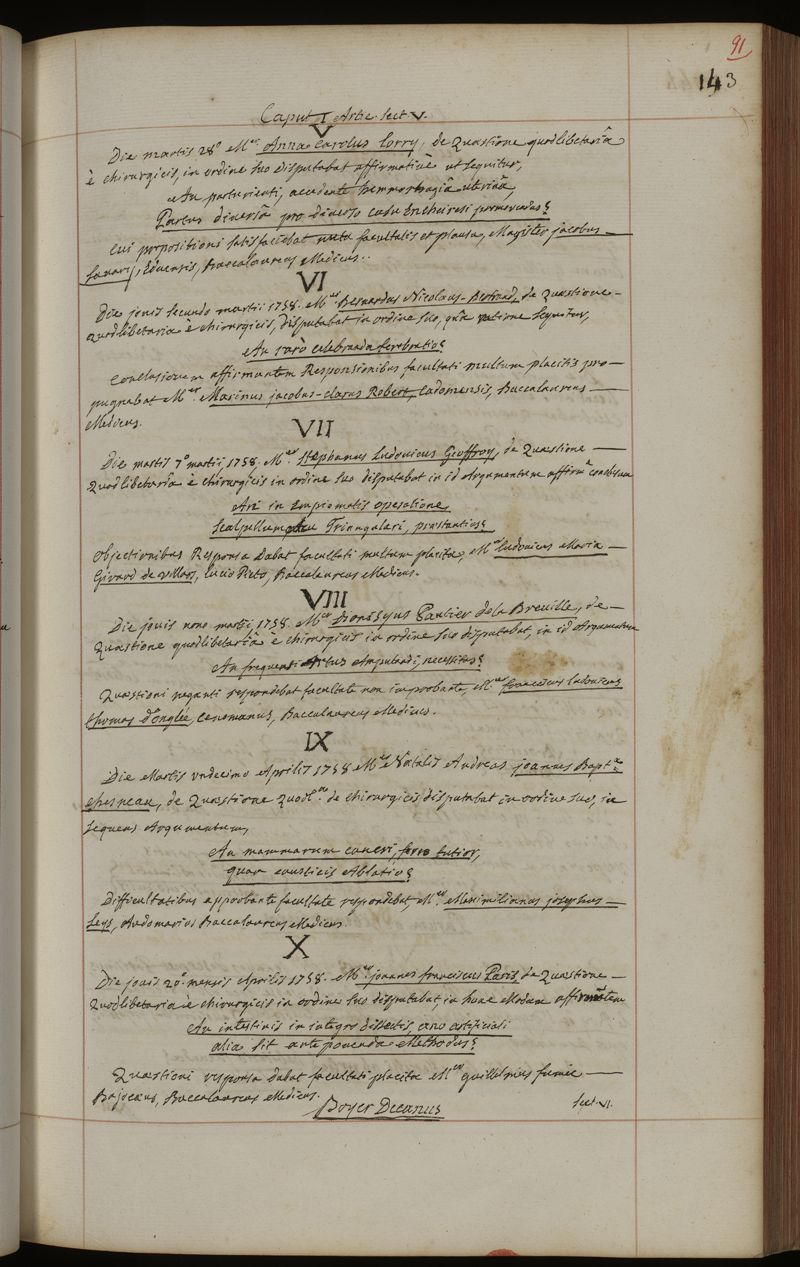 91
143
Caput I Artic. sect V.
V
Die martis 28ª Mer Anna Carolus Lorry, de Quæstione quodlibetariâ
è chirurgicis, in ordine suo disputabat affirmativè ut sequitur,
An parturienti, accedente hemmorrhagiâ uterinâ,
Partus diversâ pro diverso casu Encheiresi promovendus?
Cui propositioni satisfaciebat nutu facultatis et plausu, Magister jacobus
Savary, Eduensis, Baccalaureus Medicus..
VI
Die jovis secundo martii 1758. Mer Bernardus Nicolaus-Bertrand, de Quæstione
quodlibetaria è chirurgicis, disputabat in ordine suo, quâ ratione sequitur,
An rarò celebranda terebratio?
Conclusionem affirmantem Responsionibus facultati multum placitis pro
pugnabat Mer Marinus jacobus-clarus Robert, Cadomensis, Baccalaureus
Medicus.
VII
Die martis 7ª martii 1758. Mer Stephanus Ludovicus Geoffroy, de Quæstione
Quodlibetariâ è chirurgicis in ordine suo disputabat in id argumentum
An in Empiematis operatione,
Scalpellum Acu Triangulari, præstantius?
Objectionibus Responsa dabat facultati multum placita, Mer Ludovicus Maria
Girard de Villars, Baccalaureus Medicus.
VIII
Die jovis nono martii, 1758. Mer Dionisyus Pautier de la Breuille, de
Quæstione quodlibetariâ è chirurgicis in ordine suo disputabat, in id Argumentum
An frequens Artus Amputandi, necessitas?
Quæstioni neganti respondebat facultate non improbante, Mer franciscus ludovicus
thomas d'onglée, cenomanus, Baccalaureus Medicus.
IX
Die Martis undecimo Aprilis 1758 Mer Natalis Andreas joannes Baptte
Chesneau, de Quæstione Quodlre de chirurgicis disputabat in ordine suo, in
sequens Argumentum,
An mammarum cancri, ferro tutior,
quam causticis Ablatio?
Difficultatibus approbante facultate respondebat, Mer Maximilianus josephus
Leys, Audomarius Baccalaureus Medicus.
X
Die jovis 20ª. mensis Aprilis 1758. Mer joannes franciscus Paris, de Quæstione
Quodlibetaria è chirurgicis in ordine suo disputabat, in hunc Modum
An intestinis in integro dissectis, ano artificiali
alia sit anteponenda Methodus?
Quæstioni responsa dabat facultati placita Mer guillelmus fumée
Bajocæus, Baccalaureus Medicus.
Boyer Decanus
Sect. VI.